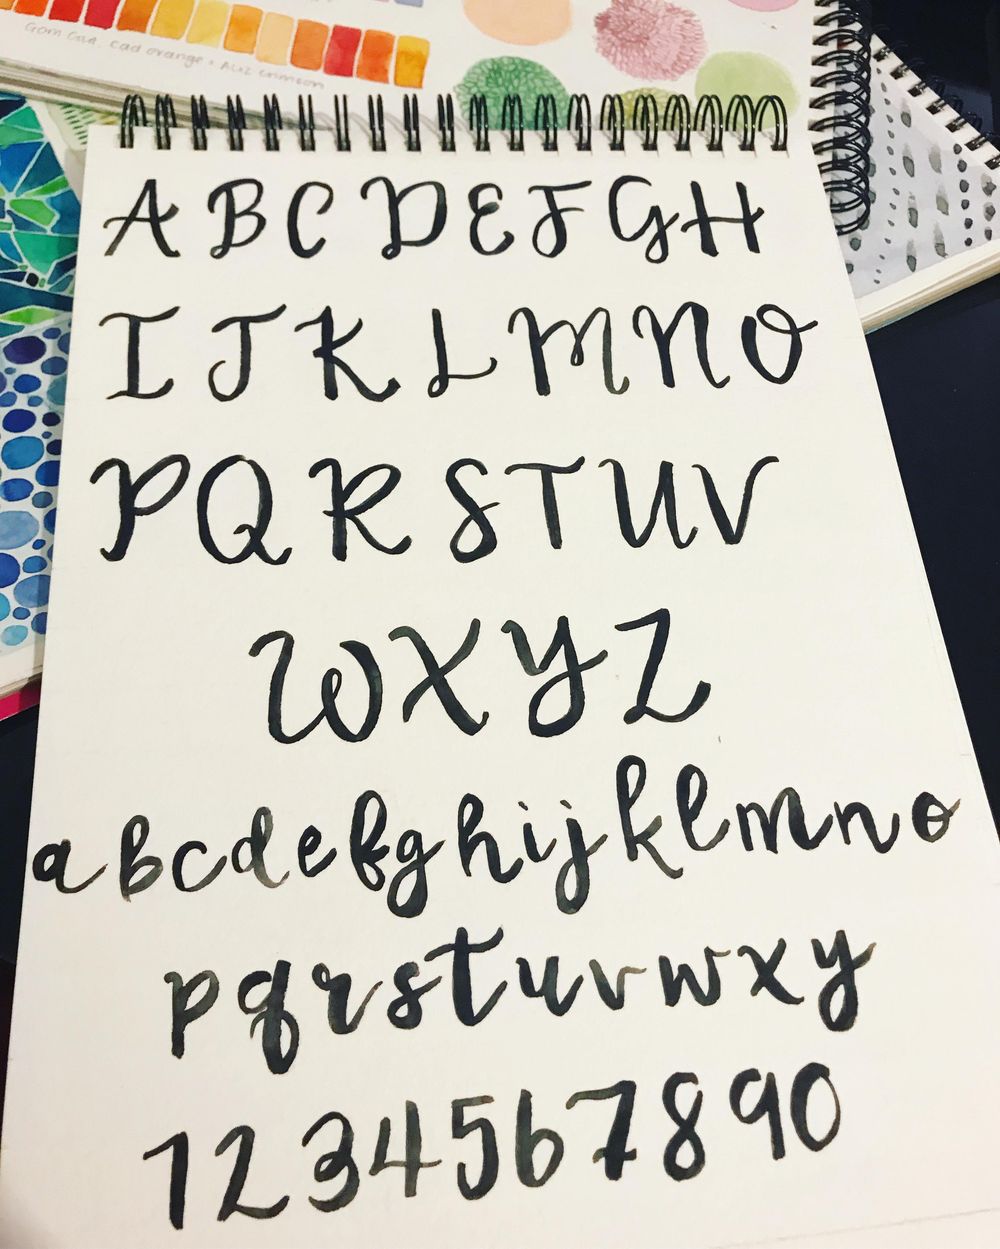 Gom Gua, cad orange + Aliz crimson
A B C D E F G H
I J K L M N O
P Q R S T U V
W X Y Z
a b c d e f g h i j k l m n o
p q r s t u v w x y
1 2 3 4 5 6 7 8 9 0